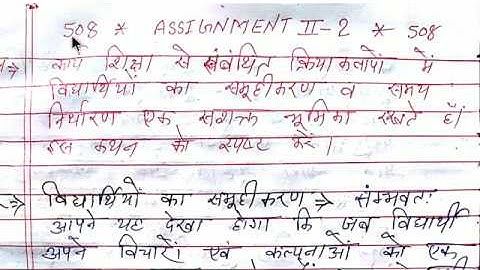 508 * ASSIGNMENT II-2 * 508
⇒ कार्य शिक्षा से संबंधित क्रियाकलापों में
विद्यार्थियों का समूहीकरण व समय
निर्धारण एक सशक्त भूमिका रखते हैं।
इस कथन को स्पष्ट करें।
⇒ विद्यार्थियों का समूहीकरण ⇒ सम्भवतः
आपने यह देखा होगा कि जब विद्यार्थी
अपने विचारों एवं कल्पनाओं को एक